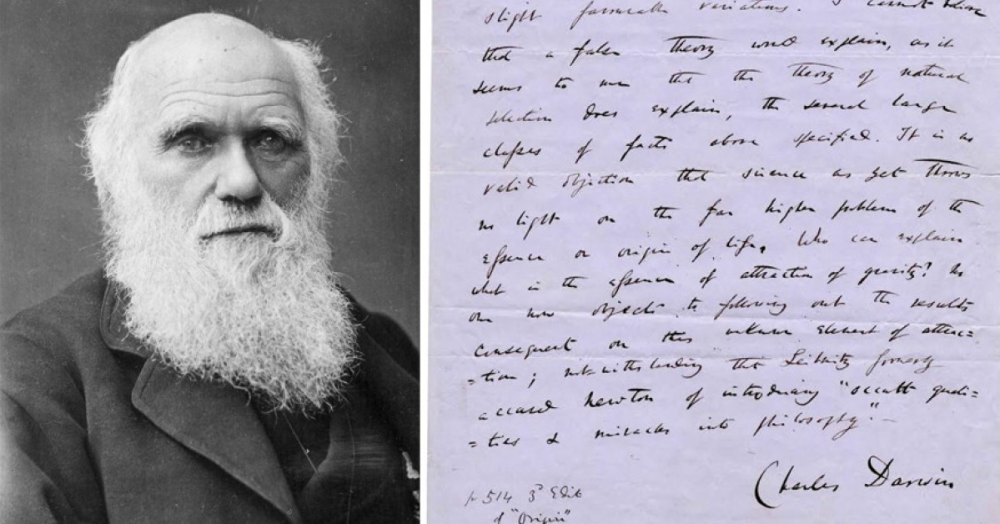 slight favourable variations. I cannot believe
that a false theory would explain, as it
seems to me that the theory of natural
selection does explain, the several large
classes of facts above specified. It is no
valid objection that science as yet throws
no light on the far higher problem of the
essence or origin of life. Who can explain
what is the essence of attraction of gravity? No
one now objects to following out the results
consequent on this unknown element of attrac=
=tion; notwithstanding that Leibnitz formerly
accused Newton of introducing "occult quali=
=ties & miracles into philosophy".—
Charles Darwin
p 514 3d Edit
of "Origin"